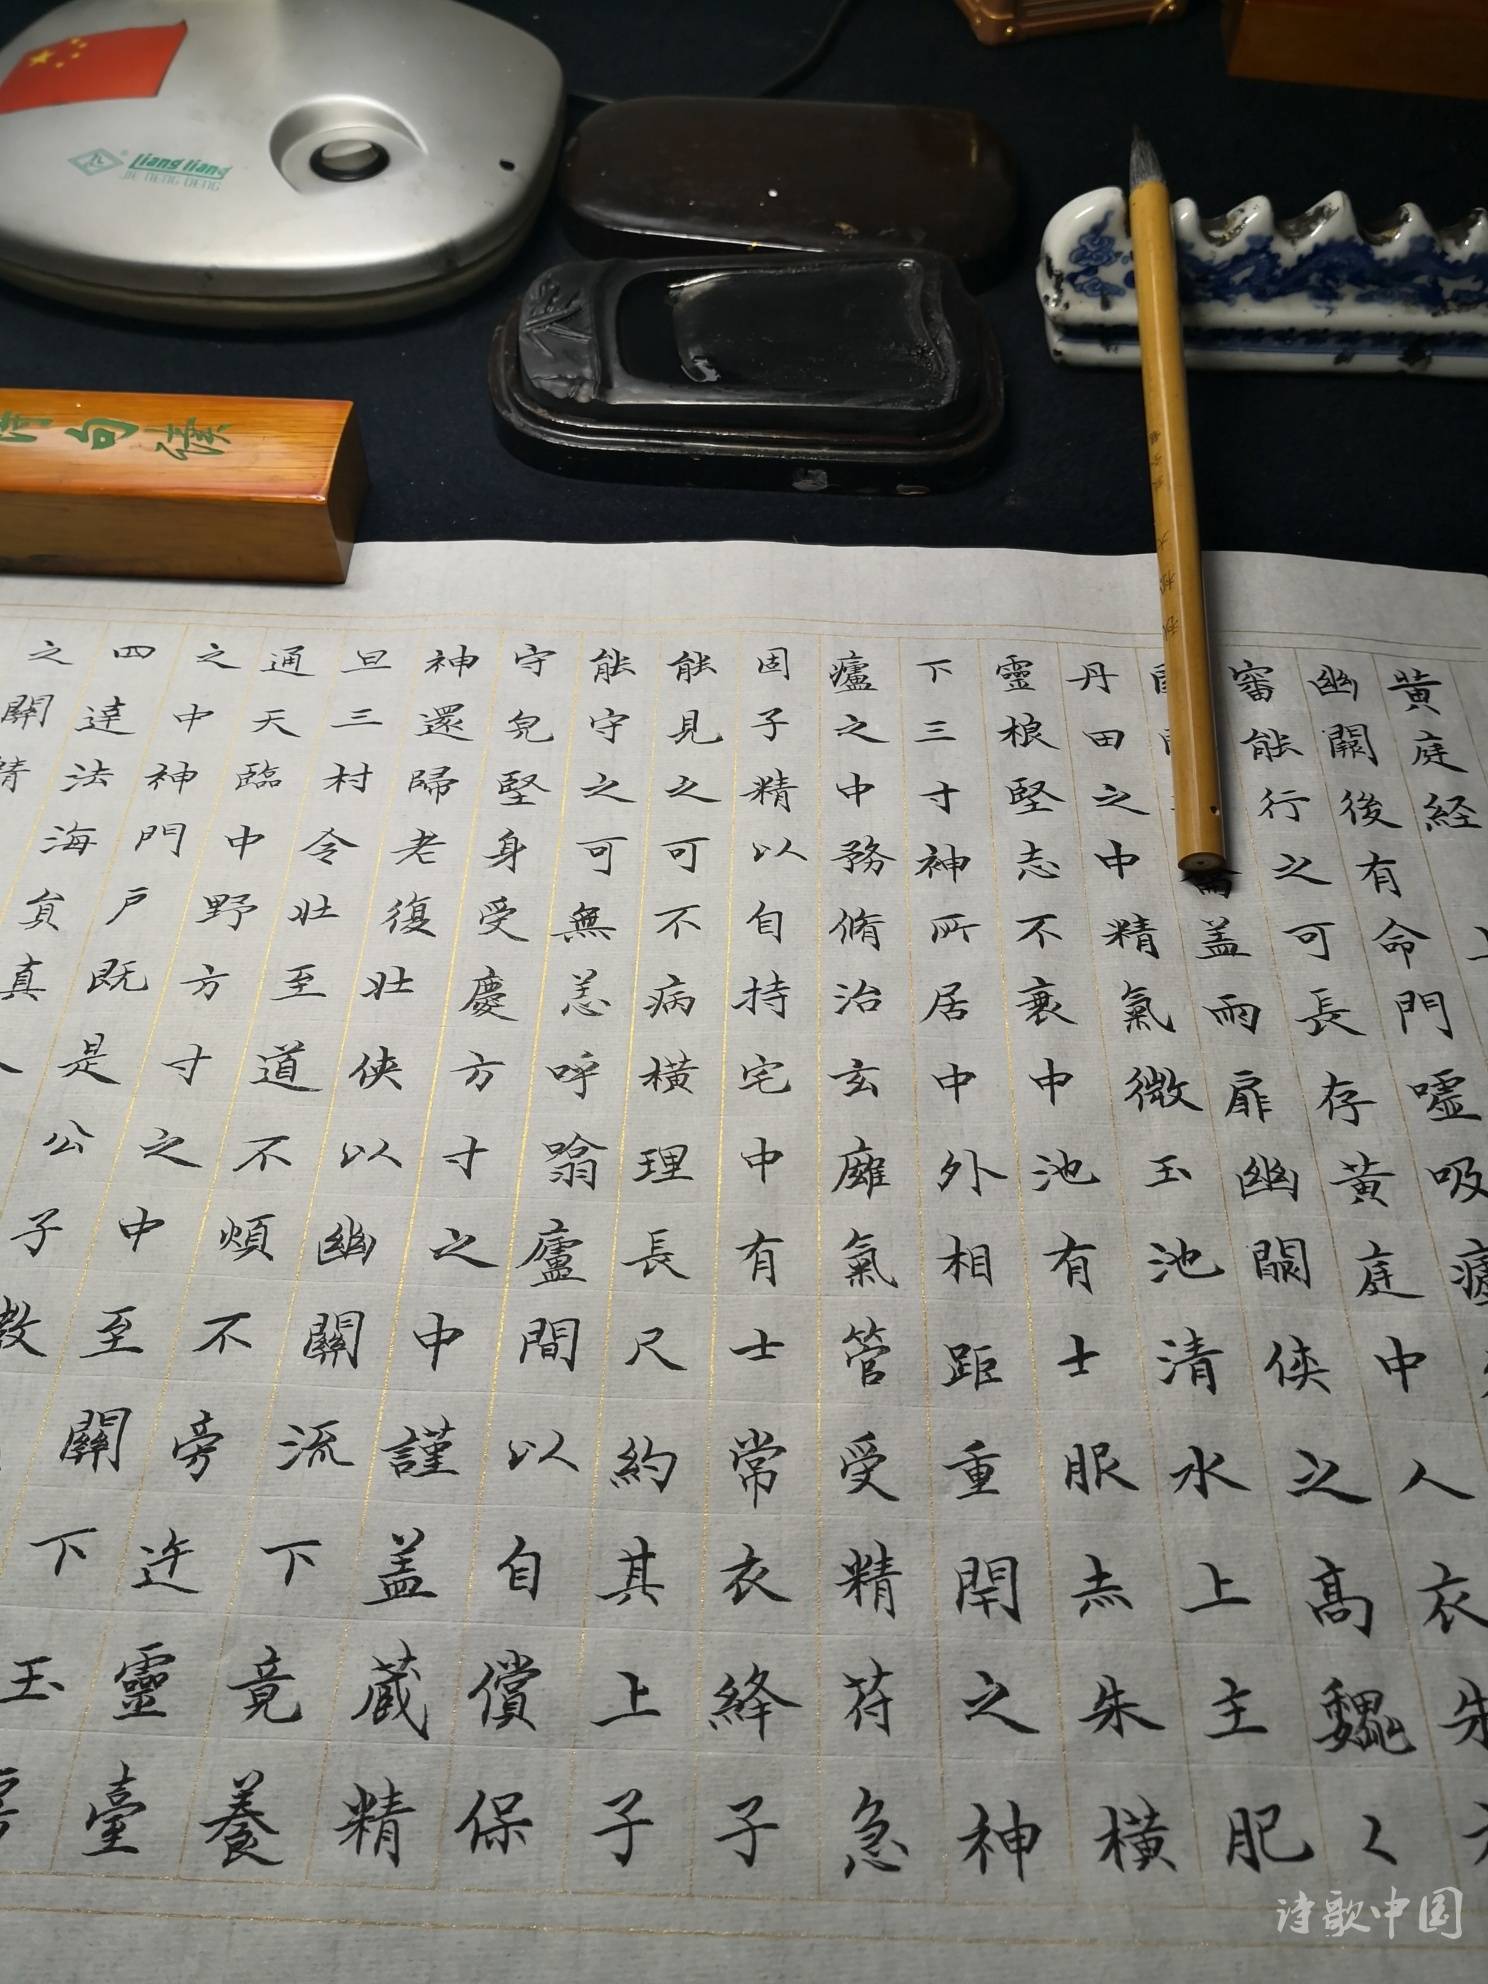 黄庭経
幽闕後有命門嘘吸廬
審能行之可長存黄庭中人衣朱
盖兩扉幽闕侠之高魏〻
丹田之中精氣微玉池清水上主肥
靈根堅志不衰中池有士服赤朱橫
下三寸神所居中外相距重閇之神
廬之中務脩治玄廱氣管受精符急
固子精以自持宅中有士常衣絳子
能見之可不病橫理長尺約其上子
能守之可無恙呼噏廬間以自償保
守皃堅身受慶方寸之中謹盖蔵精
神還歸老復壯侠以幽關流下竟養
旦三村令壯至道不煩不旁迕靈臺
通天臨中野方寸之中至關下玉房
之中神門戸既是公子教
四達法海員真人
之關精
Liangliang
JIE NENG DENG
诗歌中国